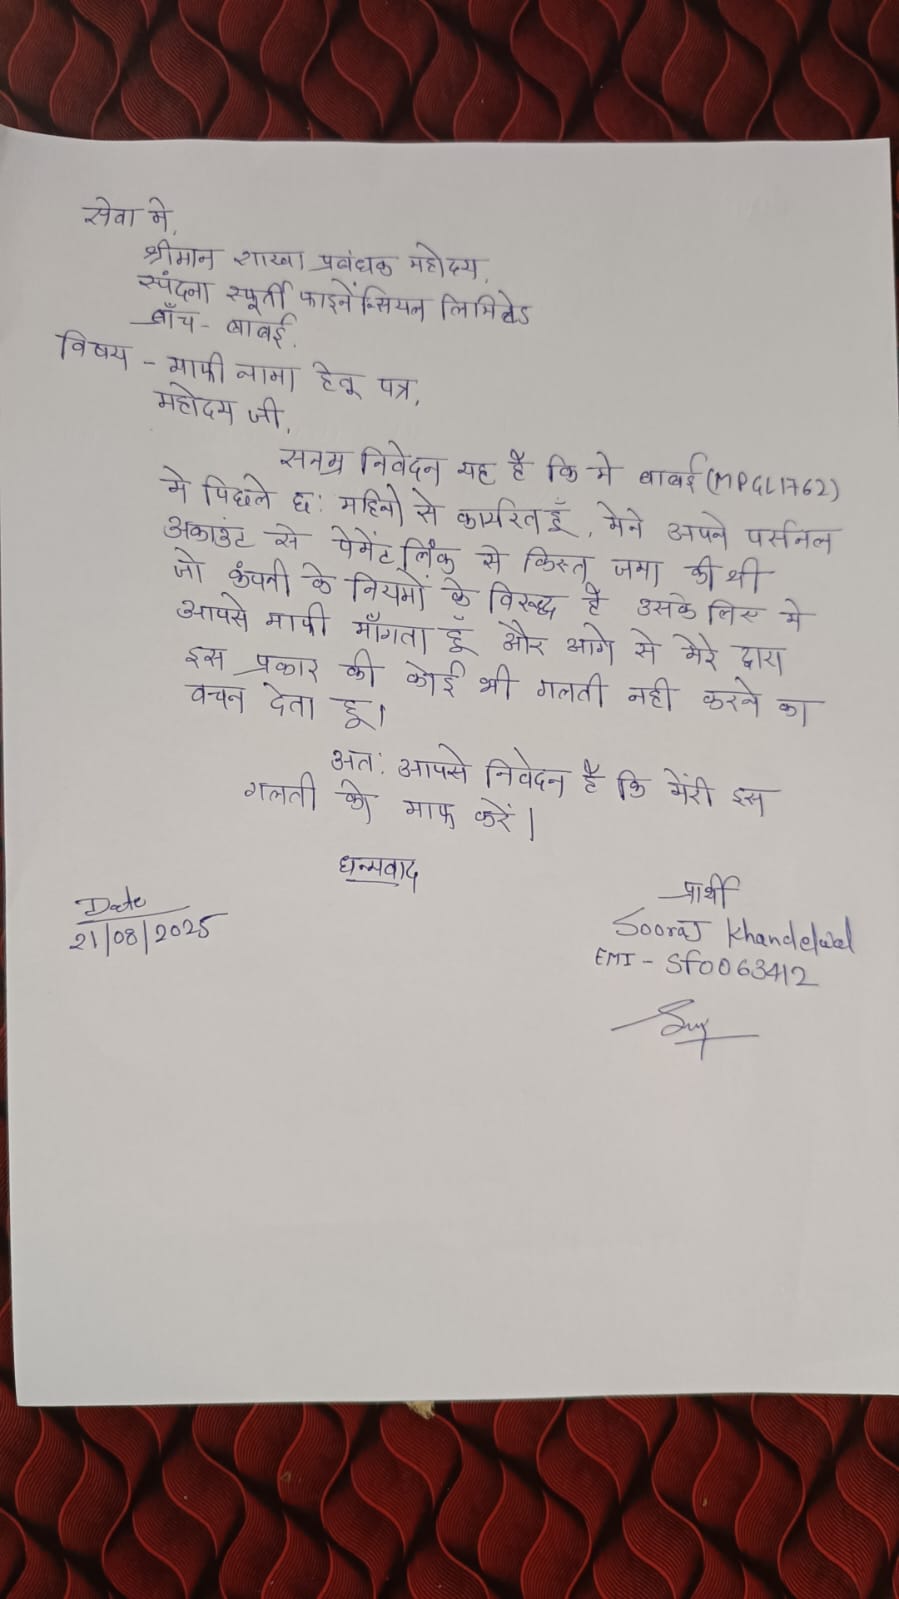 सेवा मे,
श्रीमान शाखा प्रबंधक महोदय,
स्पंदना स्फूर्ती फाइनेंन्सियन लिमिटेड
ब्राँच - बाबई.
विषय - माफी नामा हेतू पत्र,
महोदय जी,
सनम्र निवेदन यह है कि मे बाबई (MPGL1762)
मे पिछले छ: महिनो से कार्यरत हूँ, मेने अपने पर्सनल
अकाउंट से पेमेंट लिंक से किस्त जमा की थी
जो कंपनी के नियमों के विरूद्ध है उसके लिए मे
आपसे माफी माँगता हूँ और आगे से मेरे द्वारा
इस प्रकार की कोई भी गलती नही करने का
वचन देता हू।
अत: आपसे निवेदन है कि मेंरी इस
गलती को माफ करें।
धन्यवाद
प्रार्थी
Date
21/08/2025
Sooraj Khandelwal
EMI - Sf0063412